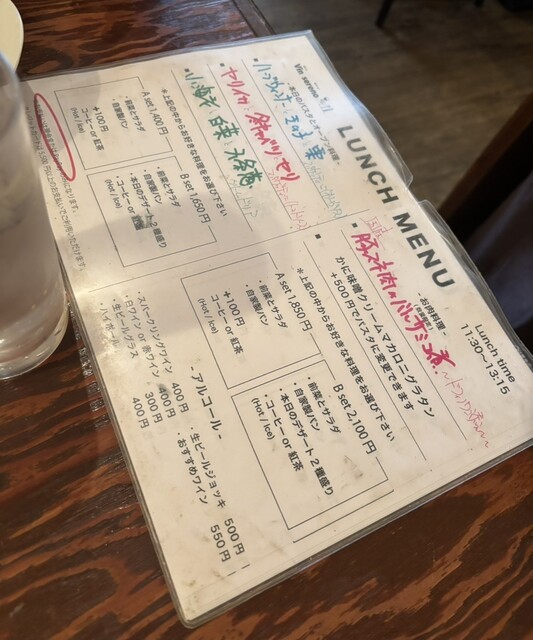 LUNCH MENU
Lunch time
11:30~13:15
Vin sereno
- 本日のパスタとオーブン料理 -
ヤリイカ
小海老 白菜
※上記の中からお好きな料理をお選び下さい
A set 1,400円
・前菜とサラダ
・自家製パン
+100円
コーヒー or 紅茶
(Hot / Ice)
B set 1,650円
・前菜とサラダ
・自家製パン
・本日のデザート2種盛り
・コーヒー or 紅茶
(Hot / Ice)
- お肉料理 -
豚スネ肉のバルサミコ煮
かに味噌クリームマカロニグラタン
+500円でパスタに変更できます
※上記の中からお好きな料理をお選び下さい
A set 1,850円
・前菜とサラダ
・自家製パン
+100円
コーヒー or 紅茶
(Hot / Ice)
B set 2,100円
・前菜とサラダ
・自家製パン
・本日のデザート2種盛り
・コーヒー or 紅茶
(Hot / Ice)
- アルコール -
・スパークリングワイン 400円
・白ワイン or 赤ワイン 400円
・生ビールグラス 300円
・ハイボール 400円
・生ビールジョッキ 500円
・おすすめワイン 550円